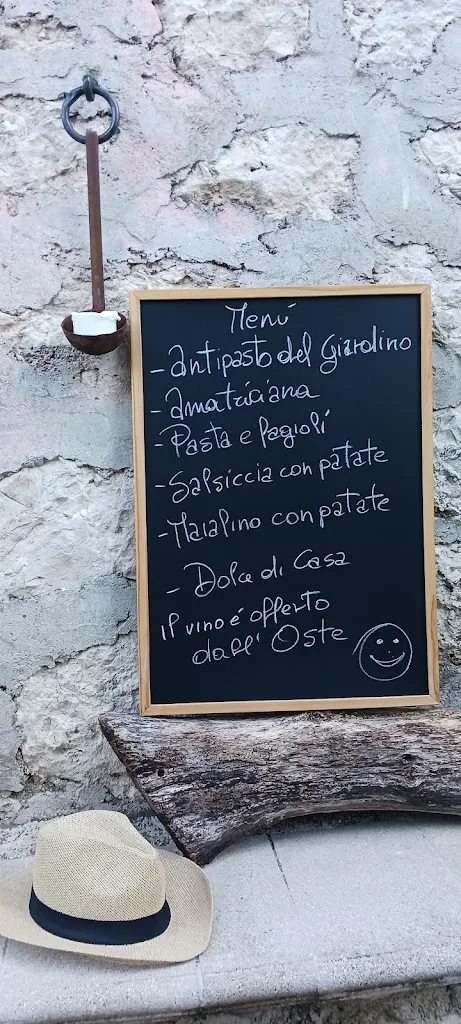 Menú
- Antipasto del Giardino
- Amatriciana
- Pasta e Fagioli
- Salsiccia con patate
- Maialino con patate
- Dolce di Casa
Il vino é offerto
dall' Oste